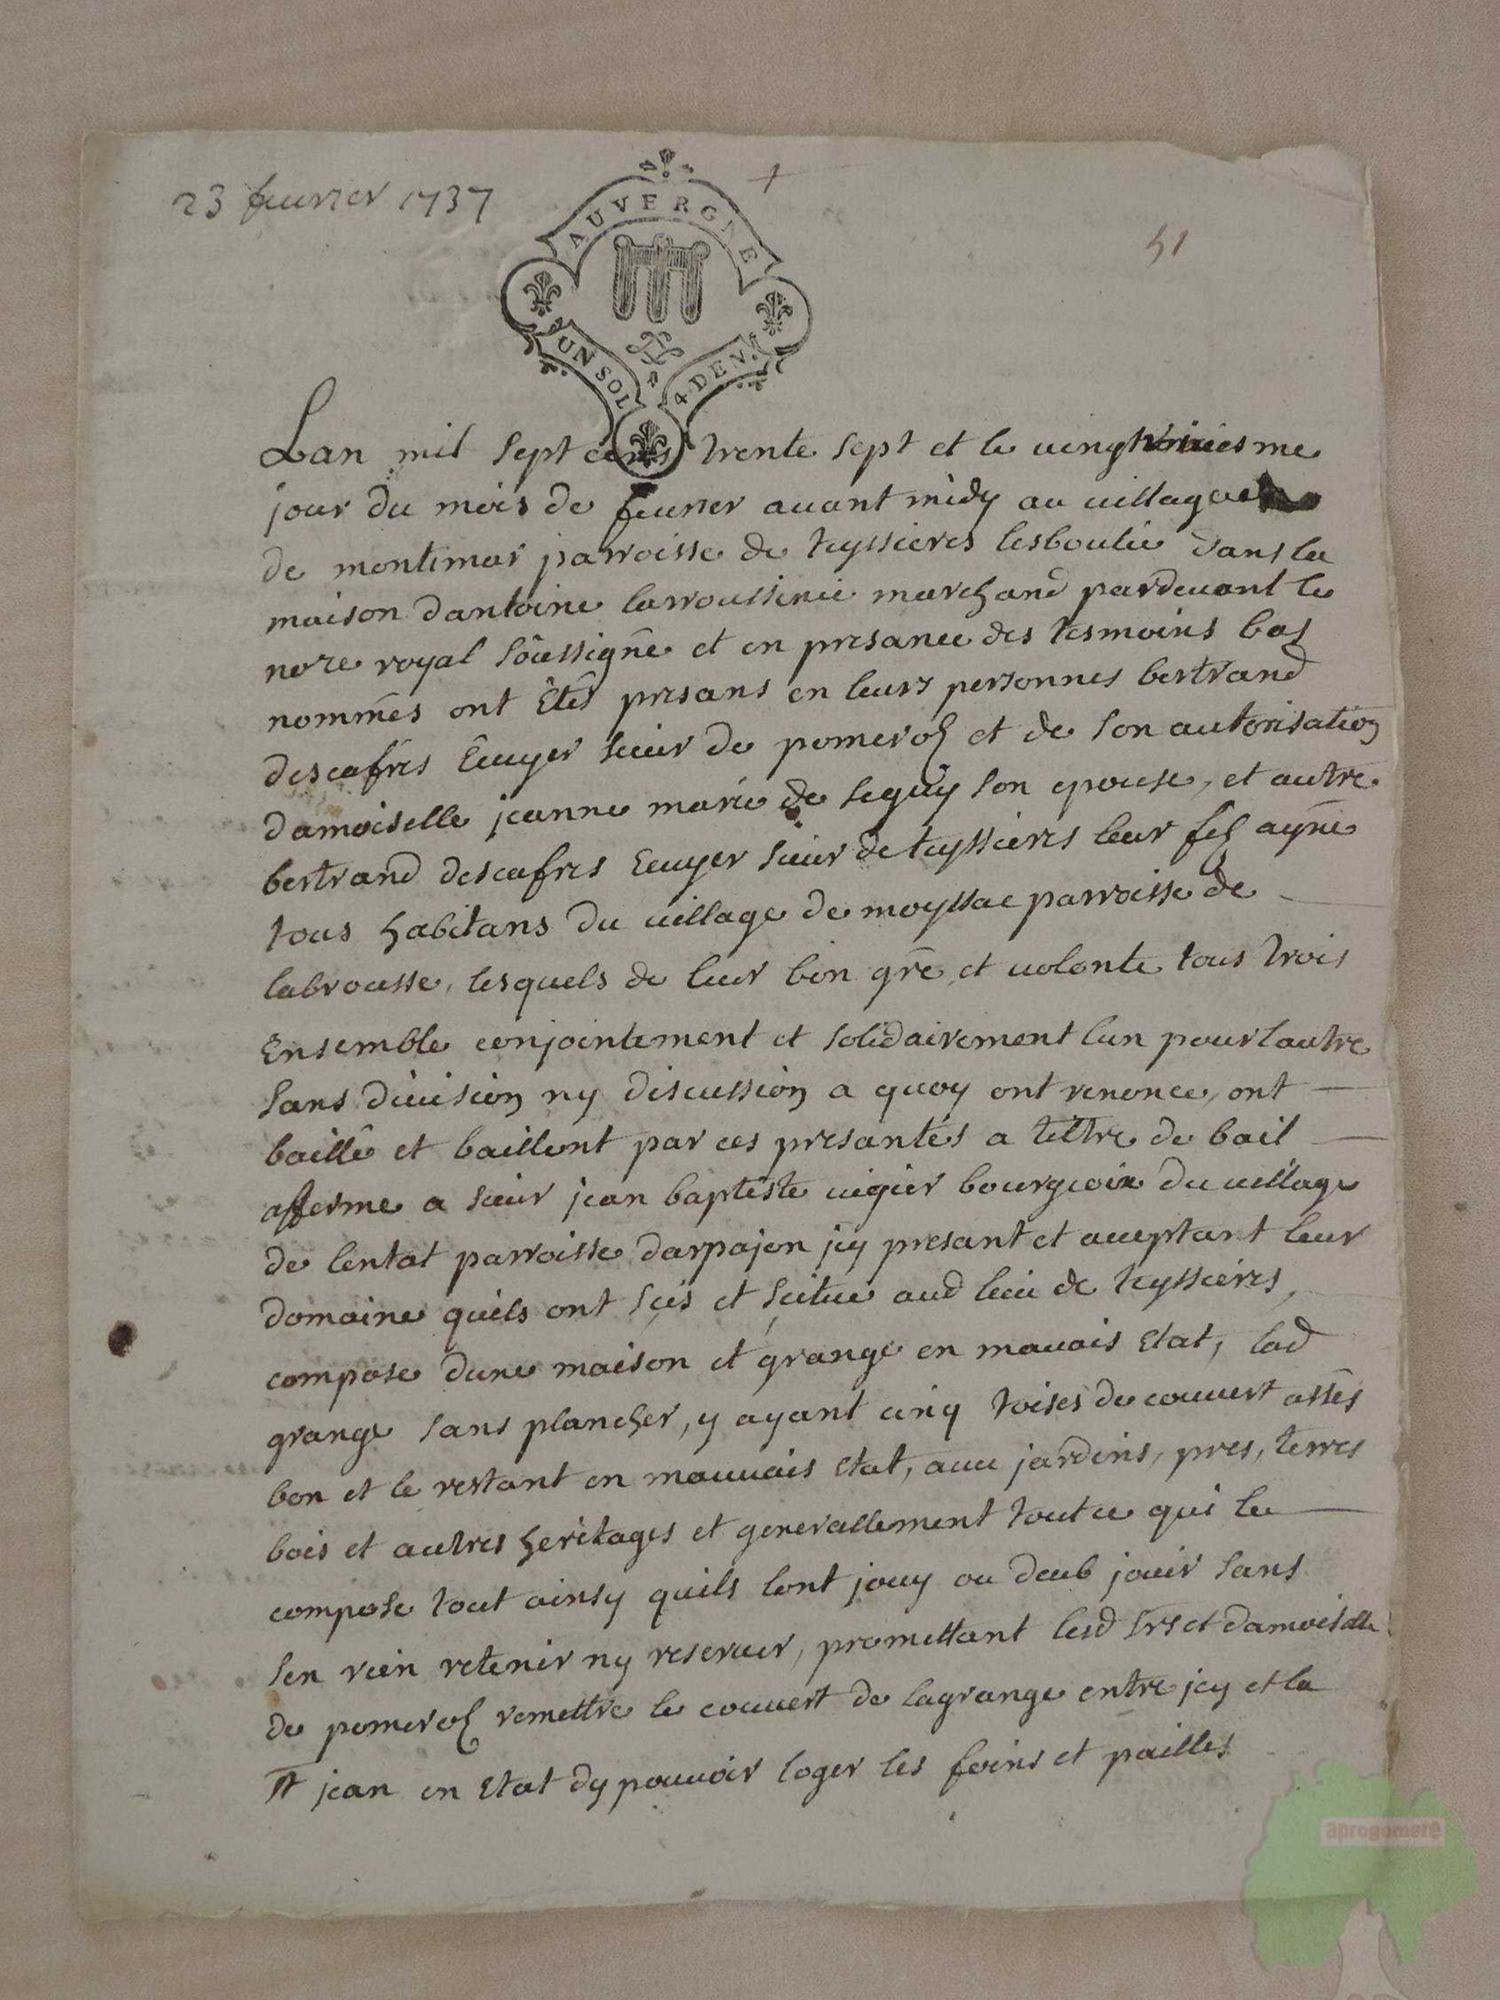 23 feuvrer 1737
AUVERGNE
UN SOL 4 DEN.
51
Lan mil sept cens trente sept et le vingt troiziesme
jour du mois de feuvrer avant midy au village
de montimar parroisse de teyssieres lesboulié dans la
maison dantoine larroussinie marchand pardevant le
nore royal soussigné et en presance des tesmoins bas
nommés ont êtés presans en leurs personnes bertrand
descafres Ecuyer sieur de pomerol et de son autorisation
damoiselle jeanne marie de seguy son epouse, et autre
bertrand descafres Ecuyer sieur de teyssieres leur fils ayné
tous habitans du village de moyssac parroisse de
labrousse, lesquels de leur bon gré et volonte tous trois
Ensemble conjointement et solidairement lun pour lautre
sans division ny discussion a quoy ont renonce, ont
baillé et baillent par ces presantes a tiltre de bail
afferme a sieur jean baptiste vigier bourgeoix du village
de lentat parroisse darpajon jcy presant et aceptant leur
domaine quils ont scis et scitue aud lieu de teyssieres,
compose dune maison et grange en mauvais Etat, lad
grange sans plancher, y ayant cinq toises de couvert assés
bon et le restant en mauvais etat, avec jardins, pres, terres
bois et autres heritages et generallement tout ce qui le
compose tout ainsy quils lont jouy ou deub jouir sans
sen rien retenir ny reserver, promettant lesd srs et damoiselle
de pomerol remettre le couvert de la grange entre jcy et la
St jean en Etat dy pouvoir loger les foins et pailles
aprogemere